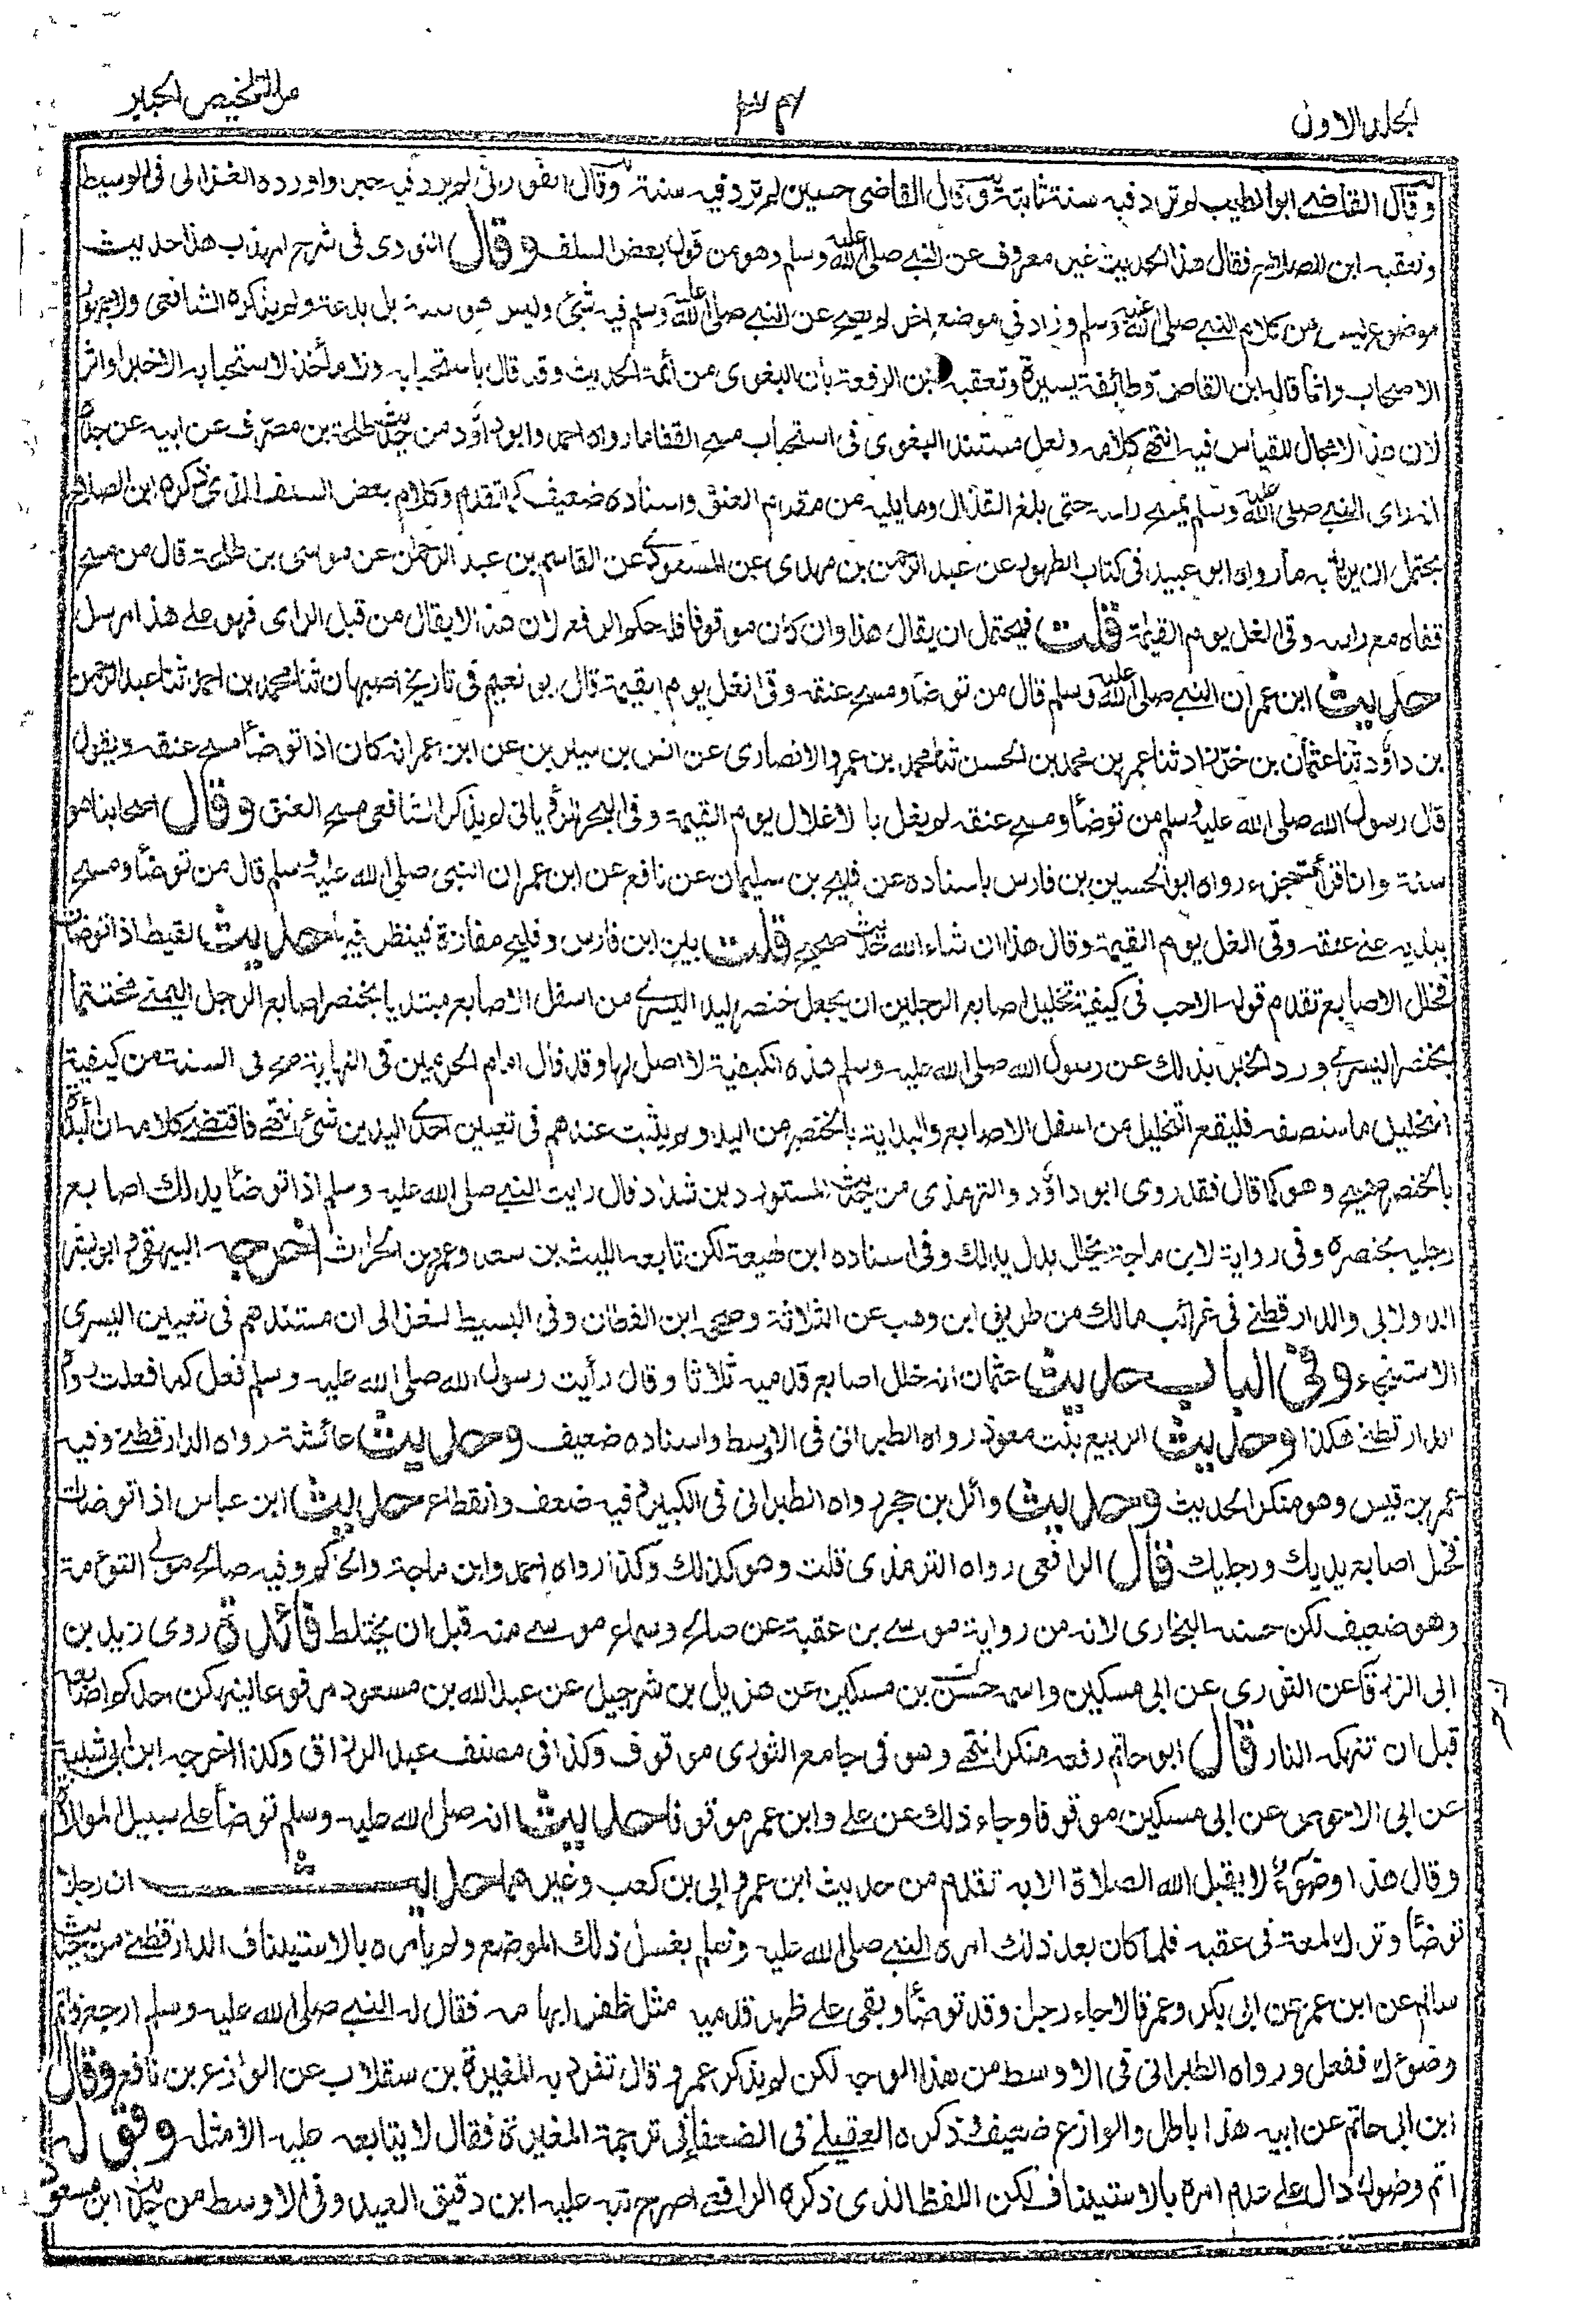 المجلد الاول
٣٤
من التلخيص الحبير
وقال القاضي ابو الطيب لم ترد فيه سنة ثابتة وقال القاضي حسين لم ترد فيه سنة وقال الفوراني لم يرد فيه خبر واورده الغزالى فى الوسيط
وتعقبه ابن الصلاح فقال هذا الحديث غير معروف عن النبي صلى الله عليه وسلم وهو من قول بعض السلف وقال النووى فى شرح المهذب هذا حديث
موضوع ليس من كلام النبي صلى الله عليه وسلم وزاد في موضع اخر لم يصح عن النبي صلى الله عليه وسلم فيه شئ وليس هو سنة بل بدعة ولم يذكره الشافعى ولا جمهور
الاصحاب وانما قاله ابن القاص وطائفة يسيرة وتعقبه ابن الرفعة بان البغوى من أئمة الحديث وقد قال باستحبابه ولا مأخذ لاستحبابه الا خبرا واثر
لان هذا لا مجال للقياس فيه انتهى كلامه ولعل مستند البغوى فى استحباب مسح القفا ما رواه احمد وابو داؤد من حديث طلحة بن مصرف عن ابيه عن جده
انه راى النبي صلى الله عليه وسلم يمسح راسه حتى بلغ القذال وما يليه من مقدم العنق واسناده ضعيف كما تقدم وكلام بعض السلف الذى ذكره ابن الصلاح
يحتمل ان يريد به ما رواه ابو عبيد فى كتاب الطهور عن عبد الرحمن بن مهدى عن المسعودى عن القاسم بن عبد الرحمان عن موسى بن طلحة قال من مسح
قفاه مع راسه وقى الغل يوم القيمة قلت فيحتمل ان يقال هذا وان كان موقوفا فله حكم الرفع لان هذا لا يقال من قبل الراى فهو على هذا مرسل
حديث ابن عمر ان النبي صلى الله عليه وسلم قال من توضأ ومسح عنقه وقى الغل يوم القيمة قال ابو نعيم فى تاريخ اصبهان ثنا محمد بن احمد ثنا عبد الرحمن
بن داؤد ثنا عثمان بن خرزاد ثنا عمر بن محمد بن الحسن ثنا محمد بن عمرو الانصارى عن انس بن سيرين عن ابن عمر انه كان اذا توضأ مسح عنقه ويقول
قال رسول الله صلى الله عليه وسلم من توضأ ومسح عنقه لم يغل بالاغلال يوم القيمة وفى البحر للرويانى لم يذكر الشافعى مسح العنق وقال اصحابنا هو
سنة وانا قرأت جزء رواه ابو الحسين بن فارس باسناده عن فليح بن سليمان عن نافع عن ابن عمر ان النبى صلى الله عليه وسلم قال من توضأ ومسح
بيديه على عنقه وقى الغل يوم القيمة وقال هذا ان شاء الله حديث صحيح قلت بين ابن فارس وفليح مفازة فينظر فيها حديث لقيط اذا توضأت
فخلل الاصابع تقدم قوله الاحب فى كيفية تخليل اصابع الرجلين ان يجعل خنصر اليد اليسرى من اسفل الاصابع مبتديا بخنصر اصابع الرجل اليمنى مختتما
بخنصر اليسرى ورد الخبر بذلك عن رسول الله صلى الله عليه وسلم هذه الكيفية لا اصل لها وقد قال امام الحرمين فى النهاية صح فى السنة من كيفية
التخليل ما سنصفه فليقع التخليل من اسفل الاصابع والبداية بالخنصر من اليد ولم يثبت عندهم فى تعيين احدى اليدين شئ انتهى فاقتضى كلامه ان البداءة
بالخنصر صحيح وهو كما قال فقد روى ابو داؤد والترمذى من حديث المستورد بن شداد قال رايت النبي صلى الله عليه وسلم اذا توضأ يدلك اصابع
رجليه بخنصره وفى رواية لابن ماجة يخلل بدل يدلك وفى اسناده ابن لهيعة لكن تابعه الليث بن سعد وعمرو بن الحارث اخرجه البيهقى وابو بشر
الدولابى والدارقطنى فى غرائب مالك من طريق ابن وهب عن الثلاثة وصححه ابن القطان وفى البسيط للغزالى ان مستندهم فى تعيين اليسرى
الاستنجاء وفى الباب حديث عثمان انه خلل اصابع قدميه ثلاثا وقال رأيت رسول الله صلى الله عليه وسلم فعل كما فعلت رواه
الدارقطنى هكذا وحديث الربيع بنت معوذ رواه الطبرانى فى الاوسط واسناده ضعيف وحديث عائشة رواه الدارقطنى وفيه
عمر بن قيس وهو منكر الحديث وحديث وائل بن حجر رواه الطبرانى فى الكبير وفيه ضعف وانقطاع حديث ابن عباس اذا توضأت
فخلل اصابع يديك ورجليك قال الرافعى رواه الترمذى قلت وهو كذلك وكذا رواه احمد وابن ماجة والحاكم وفيه صالح مولى التوءمة
وهو ضعيف لكن حسنه البخارى لانه من رواية موسى بن عقبة عن صالح وسماع موسى منه قبل ان يختلط فائدة روى زيد بن
ابى الزرقاء عن الثورى عن ابى مسكين واسمه حسن بن مسكين عن هذيل بن شرحبيل عن عبد الله بن مسعود مرفوعا لينهكن احدكم اصابعه
قبل ان تنهكه النار قال ابو حاتم رفعه منكر انتهى وهو فى جامع الثورى موقوف وكذا فى مصنف عبد الرزاق وكذا اخرجه ابن ابى شيبة
عن ابى الاحوص عن ابى مسكين موقوفا وجاء ذلك عن على وابن عمر موقوفا حديث انه صلى الله عليه وسلم توضأ على سبيل الموالاة
وقال هذا وضوء لا يقبل الله الصلاة الا به تقدم من حديث ابن عمر وابى بن كعب وغيرهما حديث ان رجلا
توضأ وترك لمعة فى عقبه فلما كان بعد ذلك امره النبي صلى الله عليه وسلم بغسل ذلك الموضع ولم يأمره بالاستيناف الدارقطنى من حديث
سالم عن ابن عمر عن ابى بكر وعمر قالا جاء رجل وقد توضأ وبقى على ظهر قدميه مثل ظفر ابهامه فقال له النبي صلى الله عليه وسلم ارجع فاتم
وضوءك ففعل ورواه الطبرانى فى الاوسط من هذا الوجه لكن لم يذكر عمر وقال تفرد به المغيرة بن سقلاب عن الوازع بن نافع وقال
ابن ابى حاتم عن ابيه هذا باطل والوازع ضعيف وذكره العقيلى فى الضعفاء فى ترجمة المغيرة فقال لا يتابعه عليه الا مثله وقوله
اتم وضوءك دال على عدم امره بالاستيناف لكن اللفظ الذى ذكره الرافعى اصرح نبه عليه ابن دقيق العيد وفى الاوسط من حديث ابن مسعود